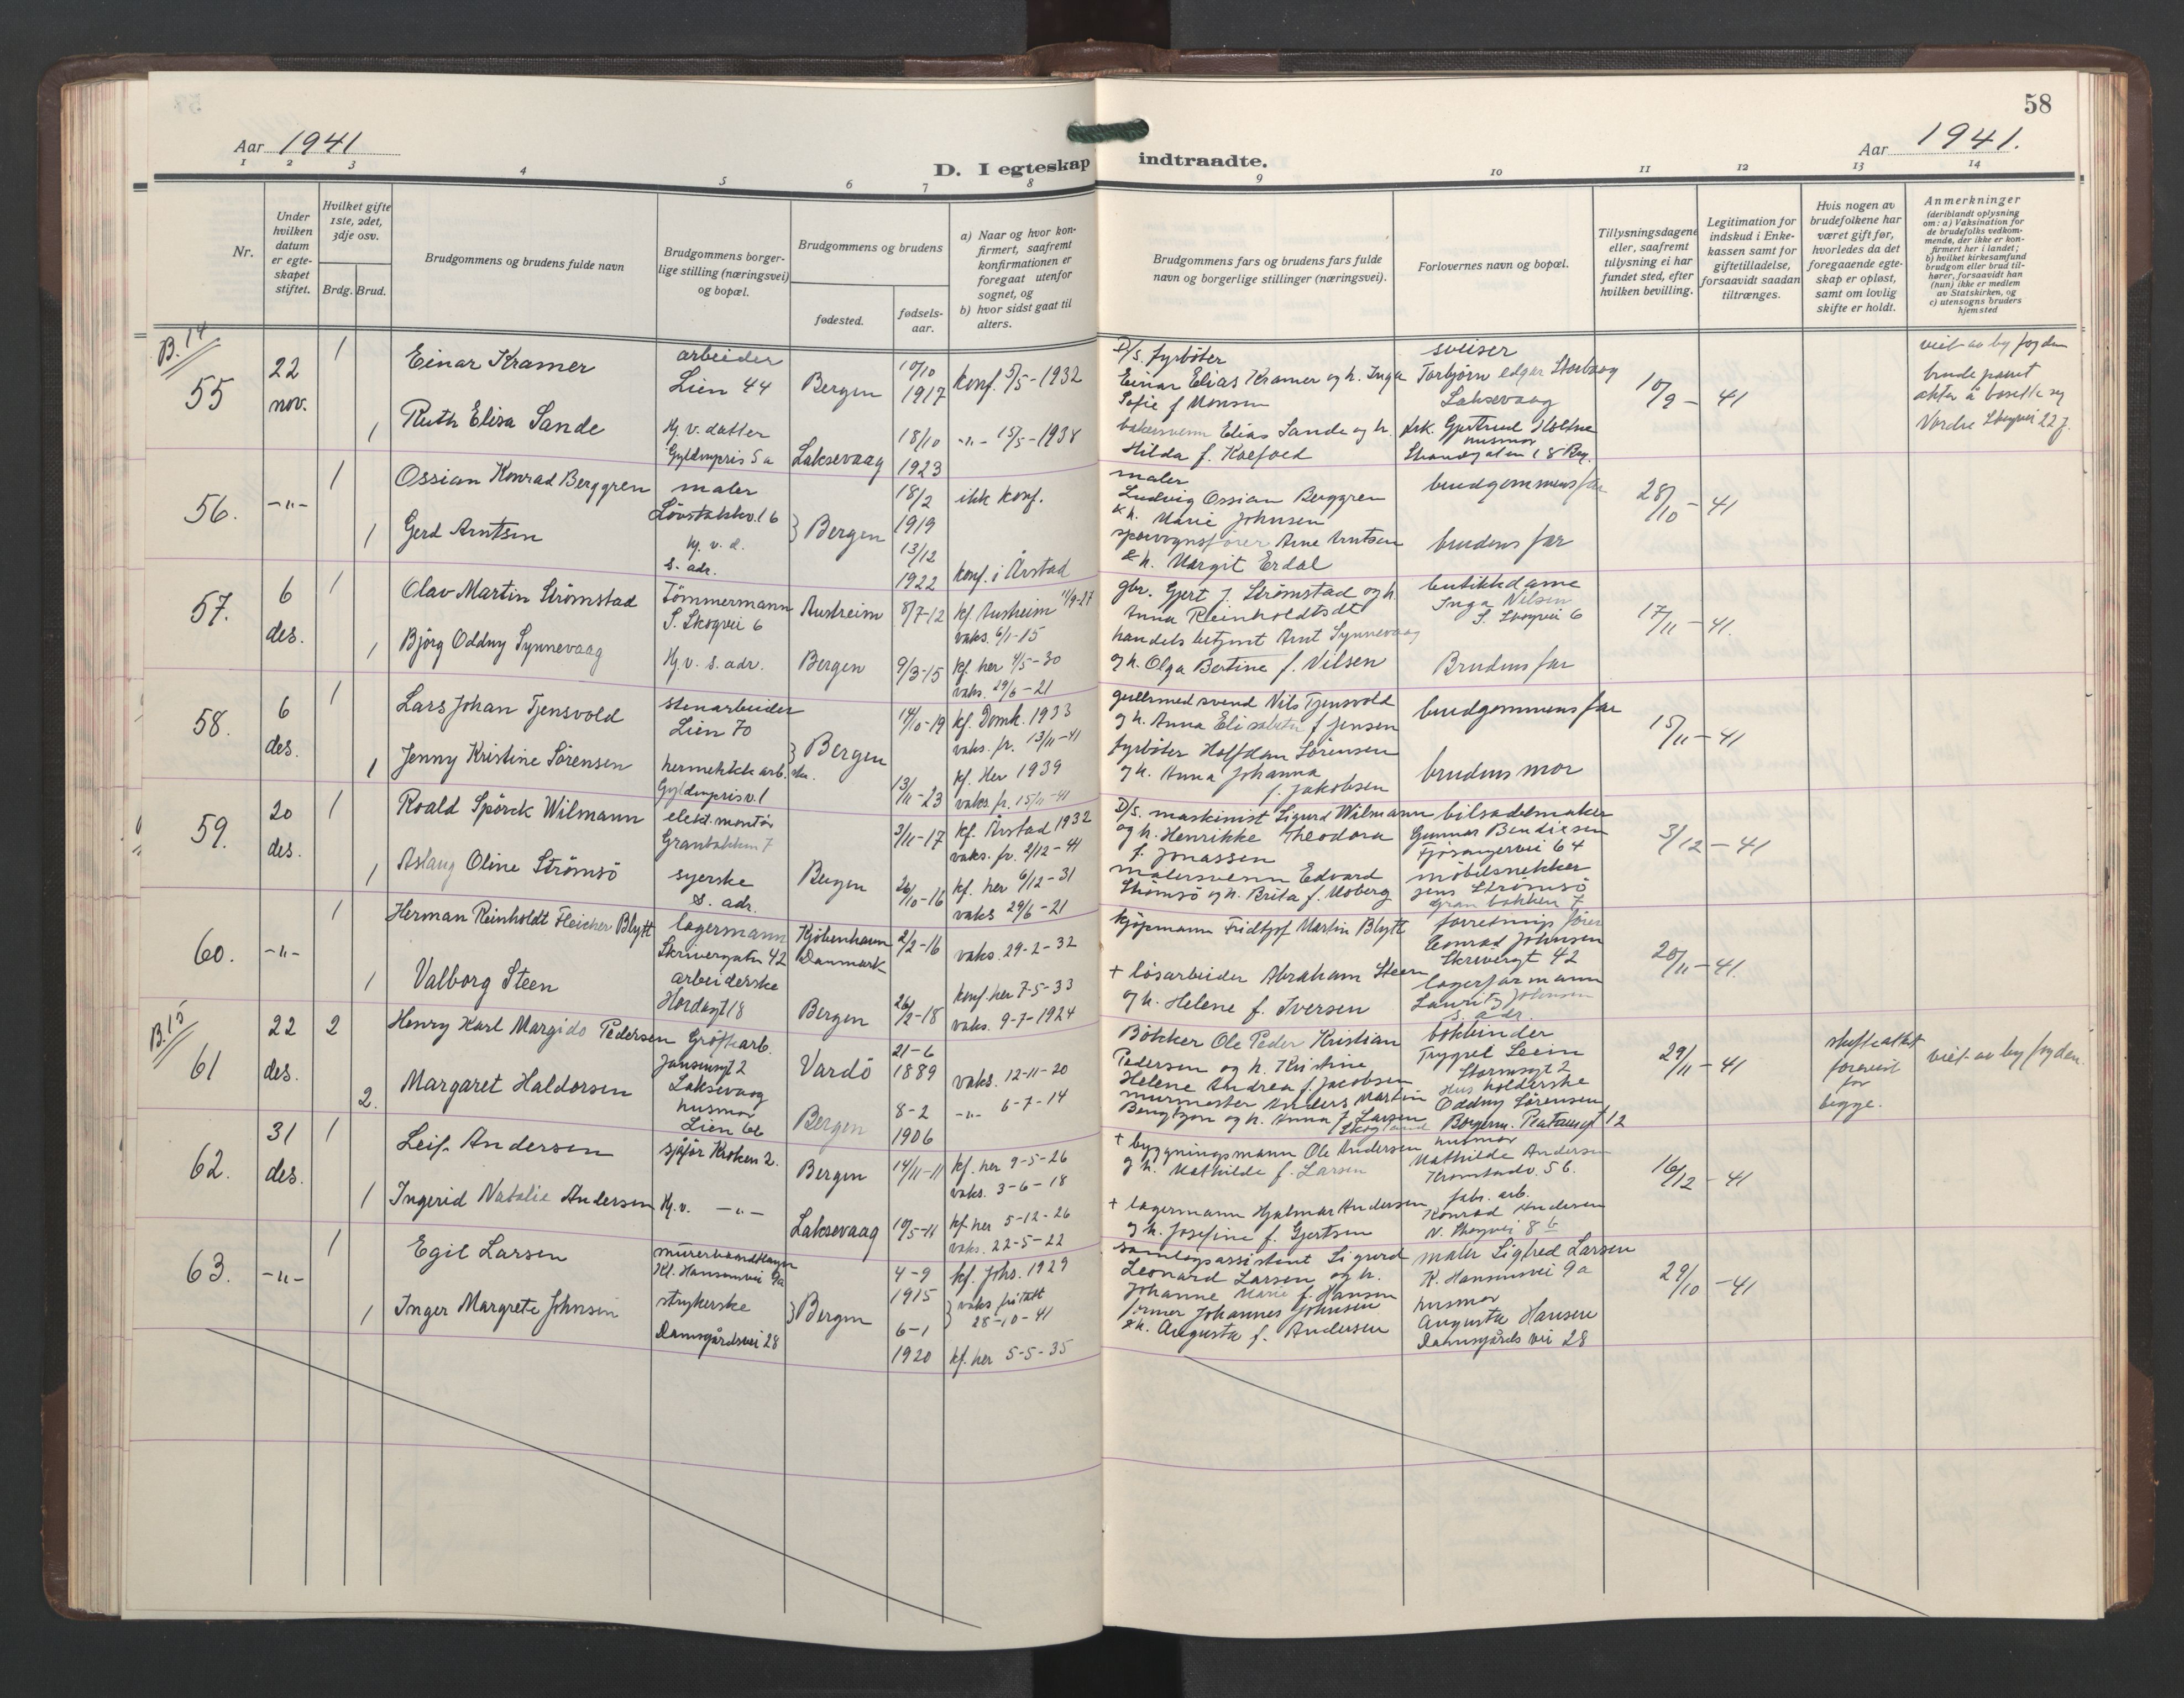 58
Aar 1941
D. I egteskap indtraadte.
Aar 1941.
1 2 3 4 5 6 7 8 9 10 11 12 13 14
Nr.
Under hvilken datum er egteskapet stiftet.
Hvilket gifte 1ste, 2det, 3dje osv.
Brdg. Brud.
Brudgommens og brudens fulde navn
Brudgommens borgerlige stilling (næringsvei) og bopæl.
Brudgommens og brudens
fødested.
fødselsaar.
a) Naar og hvor konfirmert, saafremt konfirmationen er foregaat utenfor sognet, og
b) hvor sidst gaat til alters.
Brudgommens fars og brudens fars fulde navn og borgerlige stillinger (næringsvei).
Forlovernes navn og bopæl.
Tillysningsdagene eller, saafremt tillysning ei har fundet sted, efter hvilken bevilling.
Legitimation for indskud i Enkekassen samt for giftetilladelse, forsaavidt saadan tiltrænges.
Hvis nogen av brudefolkene har været gift før, hvorledes da det foregaaende egteskap er opløst, samt om lovlig skifte er holdt.
Anmerkninger
(deriblandt oplysning om: a) Vaksination for de brudefolks vedkommende, der ikke er konfirmert her i landet; b) hvilket kirkesamfund brudgom eller brud tilhører, forsaavidt han (hun) ikke er medlem av Statskirken, og c) utensogns bruders hjemsted
B. 14
55
22 nov.
1
Einar Kramer
arbeider
Lien 44
Bergen
10/10 1917
konf. 5/5-1932
D/S. fyrbøter
Einar Elias Kramer og h. Inga
Sofie f Monsen
sveiser
Torbjørn Edgar
Laksevaag
10/9 - 41
viet av byfogden
brudeparet
akter å bosette seg
Nordre Skogvei 22
1
Ruth Elisa Sande
Hj. v. datter
Gyldenpris 5a
Laksevaag
18/10 1923
-"- 15/5-1938
bakersvenn Elias Sande og h.
Hilda f. Koefoed
frk. Gjertrud
husmor
56.
-"-
1
Ossian Konrad Berggren
maler
Løvstakkv. 16
Bergen
18/2 1919
ikk konf.
maler
Ludvig Ossian Berggren
& h. Marie Johnsen
brudgommens far
28/10 - 41
1
Gerd Arntsen
Hj. v. d.
s. adr.
13/12 1922
konf. i Årstad
sporvognsfører Arne Arntsen
& h. Margit Erdal
brudens far
57.
6 des.
1
Olav Martin Strømstad
Tømmermann
S. Skogvei 6
Austreim
8/7-12
kf Austreim 11/9-27
vaks. 6/1-15
gbr. Gjert J. Strømstad og h
Anna Reinholdtsdt
butikkdame
Inga Nilsen
S. Skogvei 6
17/11 - 41.
1
Bjørg Oddny Synnevaag
Hj. v. s. adr.
Bergen
9/3-15
kf. her 4/5-30
vaks. 29/6-21
handels betjent Arnt Synnevaag
og h. Olga Bertine f. Nilsen
Brudens far
58.
6 des.
1
Lars Johan Tjensvold
stenarbeider
Lien 70
Bergen
14/10-19
kf. Domk. 1933
vaks. fr. 13/11-41
gullsmedsvend Nils Tjensvold
og h. Anna Elisabeth f Jensen
brudgommens far
15/11 - 41
1
Jenny Kristine Sørensen
hermetikk arb.
Gyldenprisv. 1
13/11-23
kf. Her 1939
vaks. fr. 15/11-41
fyrbøter Halfdan Sørensen
og h. Anna Johanna
f. Jakobsen
brudens mor
59.
20 des.
1
Roald Spörck Wilmann
elekt. montør
Granbakken 7
3/11-17
kf. Årstad 1932
vaks. fr. 2/12-41
D/S. maskinist Sigurd Wilmann
og h. Henrikke Theodora
f. Jonassen
bilsadelmaker
Gunnar Bendixsen
Fjøsangervei 64
3/12 - 41
1
Aslaug Oline Strømsö
syerske
s. adr.
Bergen
26/10-16
kf. her 6/12-31
vaks 29/6-21
malersvenn Edvard
Strømsö og h. Brita f. Moberg
møbelsnekker
Jens Strømsö
Granbakken 7
60.
-"-
1
Herman Reinholdt Fleicher Blytt
lagermann
Skrivergaten 42
Kjöbenhavn
Danmark
2/2-16
vaks. 29-2-32
kjøpmann Fridtjof Martin Blytt
forretningsfører
Conrad Johnsen
Skrivergt 42
20/11 - 41.
1
Valborg Steen
arbeiderske
Hordagt 18
Bergen
26/2-18
konf. her 7-5-33
vaks. 9-7-1924
+ løsarbeider Abraham Steen
og h. Helene f. Iversen
lagerformann
Lauritz Johnsen
s. adr.
B. 15
61
22 des.
2
Henry Karl Margido Pedersen
Grøftearb.
Jansensgt 2
Laksevaag
Vardö
21-6 1889
vaks. 12-11-20
Bökker Ole Peder Kristian
Pedersen og h. Kristine
Helene Andrea f. Jacobsen
bokbinder
Trygve Stein
Stormsgt 2
29/11 - 41
skifteattest
forevist
for
begge.
viet av byfogden.
2.
Margaret Haldorsen
husmor
Lien 66
Bergen
8-2 1906
-"- 6-7-14
murmester Anders Martin
Bengtzon og h. Anna f Larsen
Skogland
Husholderske
Oddny Sørensen
62.
31 des.
1
Leif Andersen
sjåfør Kroken 2.
Bergen
14/11-11
kf. her 9-5-26
vaks. 3-6-18
+ bygningsmann Ole Andersen
og h. Mathilde f. Larsen
husmor
Mathilde Andersen
16/12 - 41
1
Ingerid Natalie Andersen
Hj. v. -"-
Laksevaag
10/5-11
kf her 5-12-26
vaks. 22-5-22
+ lagermann Hjalmar Andersen
og h. Josefine f. Gjertsen
fabr. arb.
Konrad Andersen
N. Skogvei 8 b
63.
-"-
1
Egil Larsen
murerhaandlanger
Kl. Hansensvei 9a
Bergen
4-9 1915
kf. Johs. 1929
vaks fritatt
28-10-41
Sigurd
Leonard Larsen og h.
Johanne Marie f. Hansen
maler Sigfred Larsen
K. Hansensvei 9a
29/10 - 41
1
Inger Margrete Johnsen
strykerske
Damsgårdsvei 28
6-1 1920
kf. her 5-5-35
former Johannes Johnsen
& h. Augusta f. Andersen
husmor
Augusta Hansen
Damsgårds vei 28